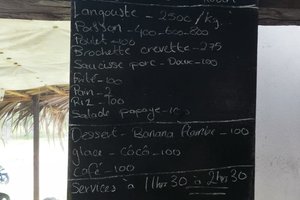 Langouste - 2500/kg
Poisson - 400-500-600
Poulet - 100
Brochette crevette - 275
Saucisse porc - Doux - 100
Frite - 100
Pain - 2
Riz - 100
Salade papaye - 100
Desset - Banana flambe - 100
glace - Côcô - 100
café - 100
Services à 11hr30 à 2hr30